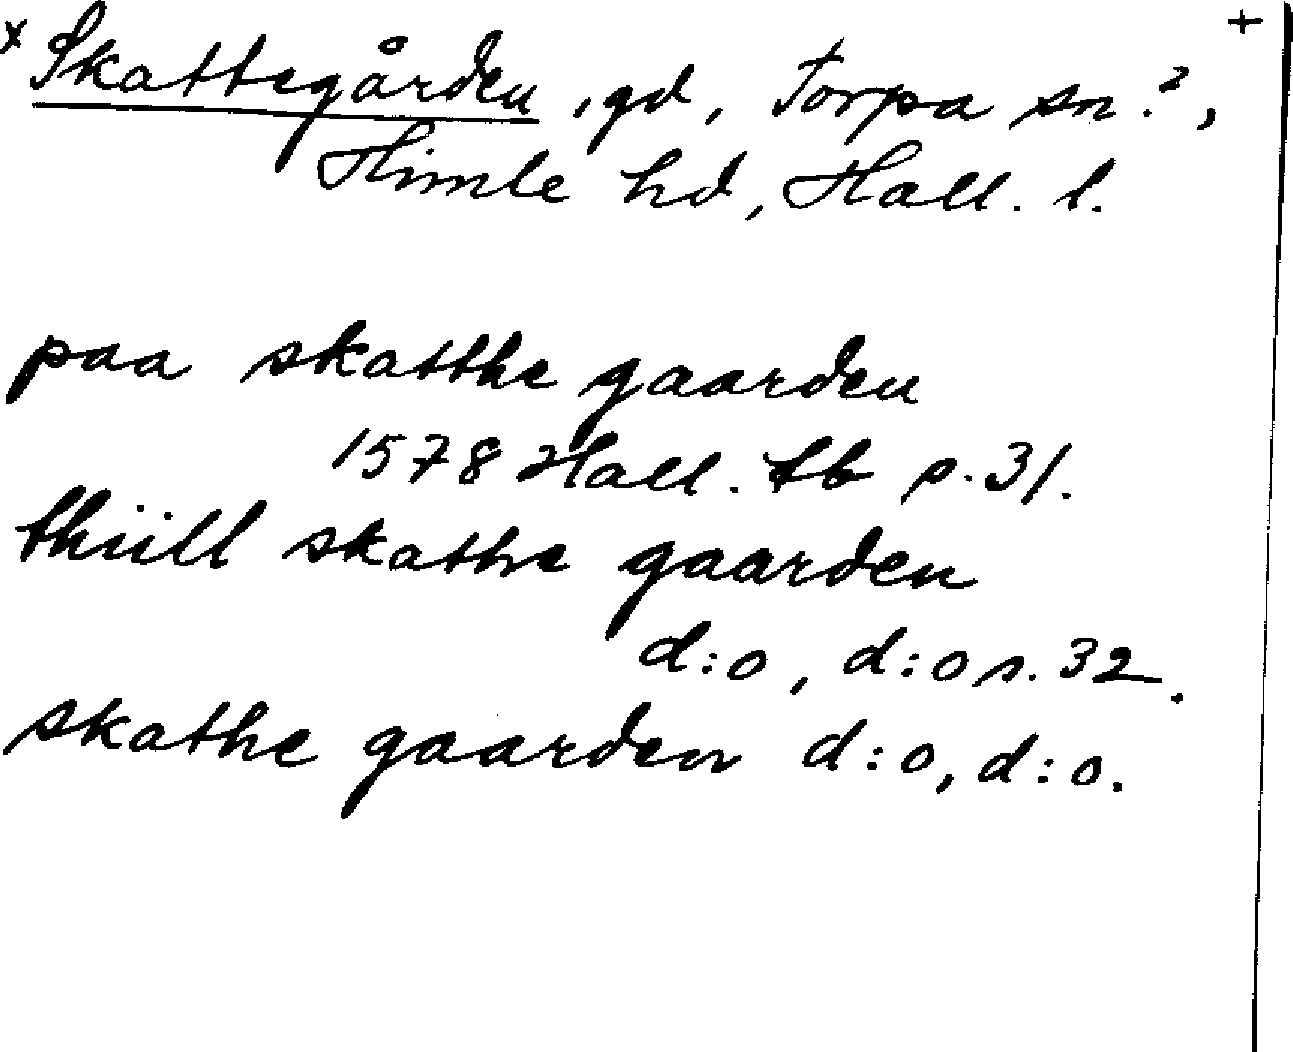 x Skattegården, gd, Torpa sn.?, +
Himle hd, Hall. l.
paa skatthe gaarden
1578 Hall. tb s. 31.
thüll skathe gaarden
d:o, d:o s. 32.
skathe gaarden d:o, d:o.